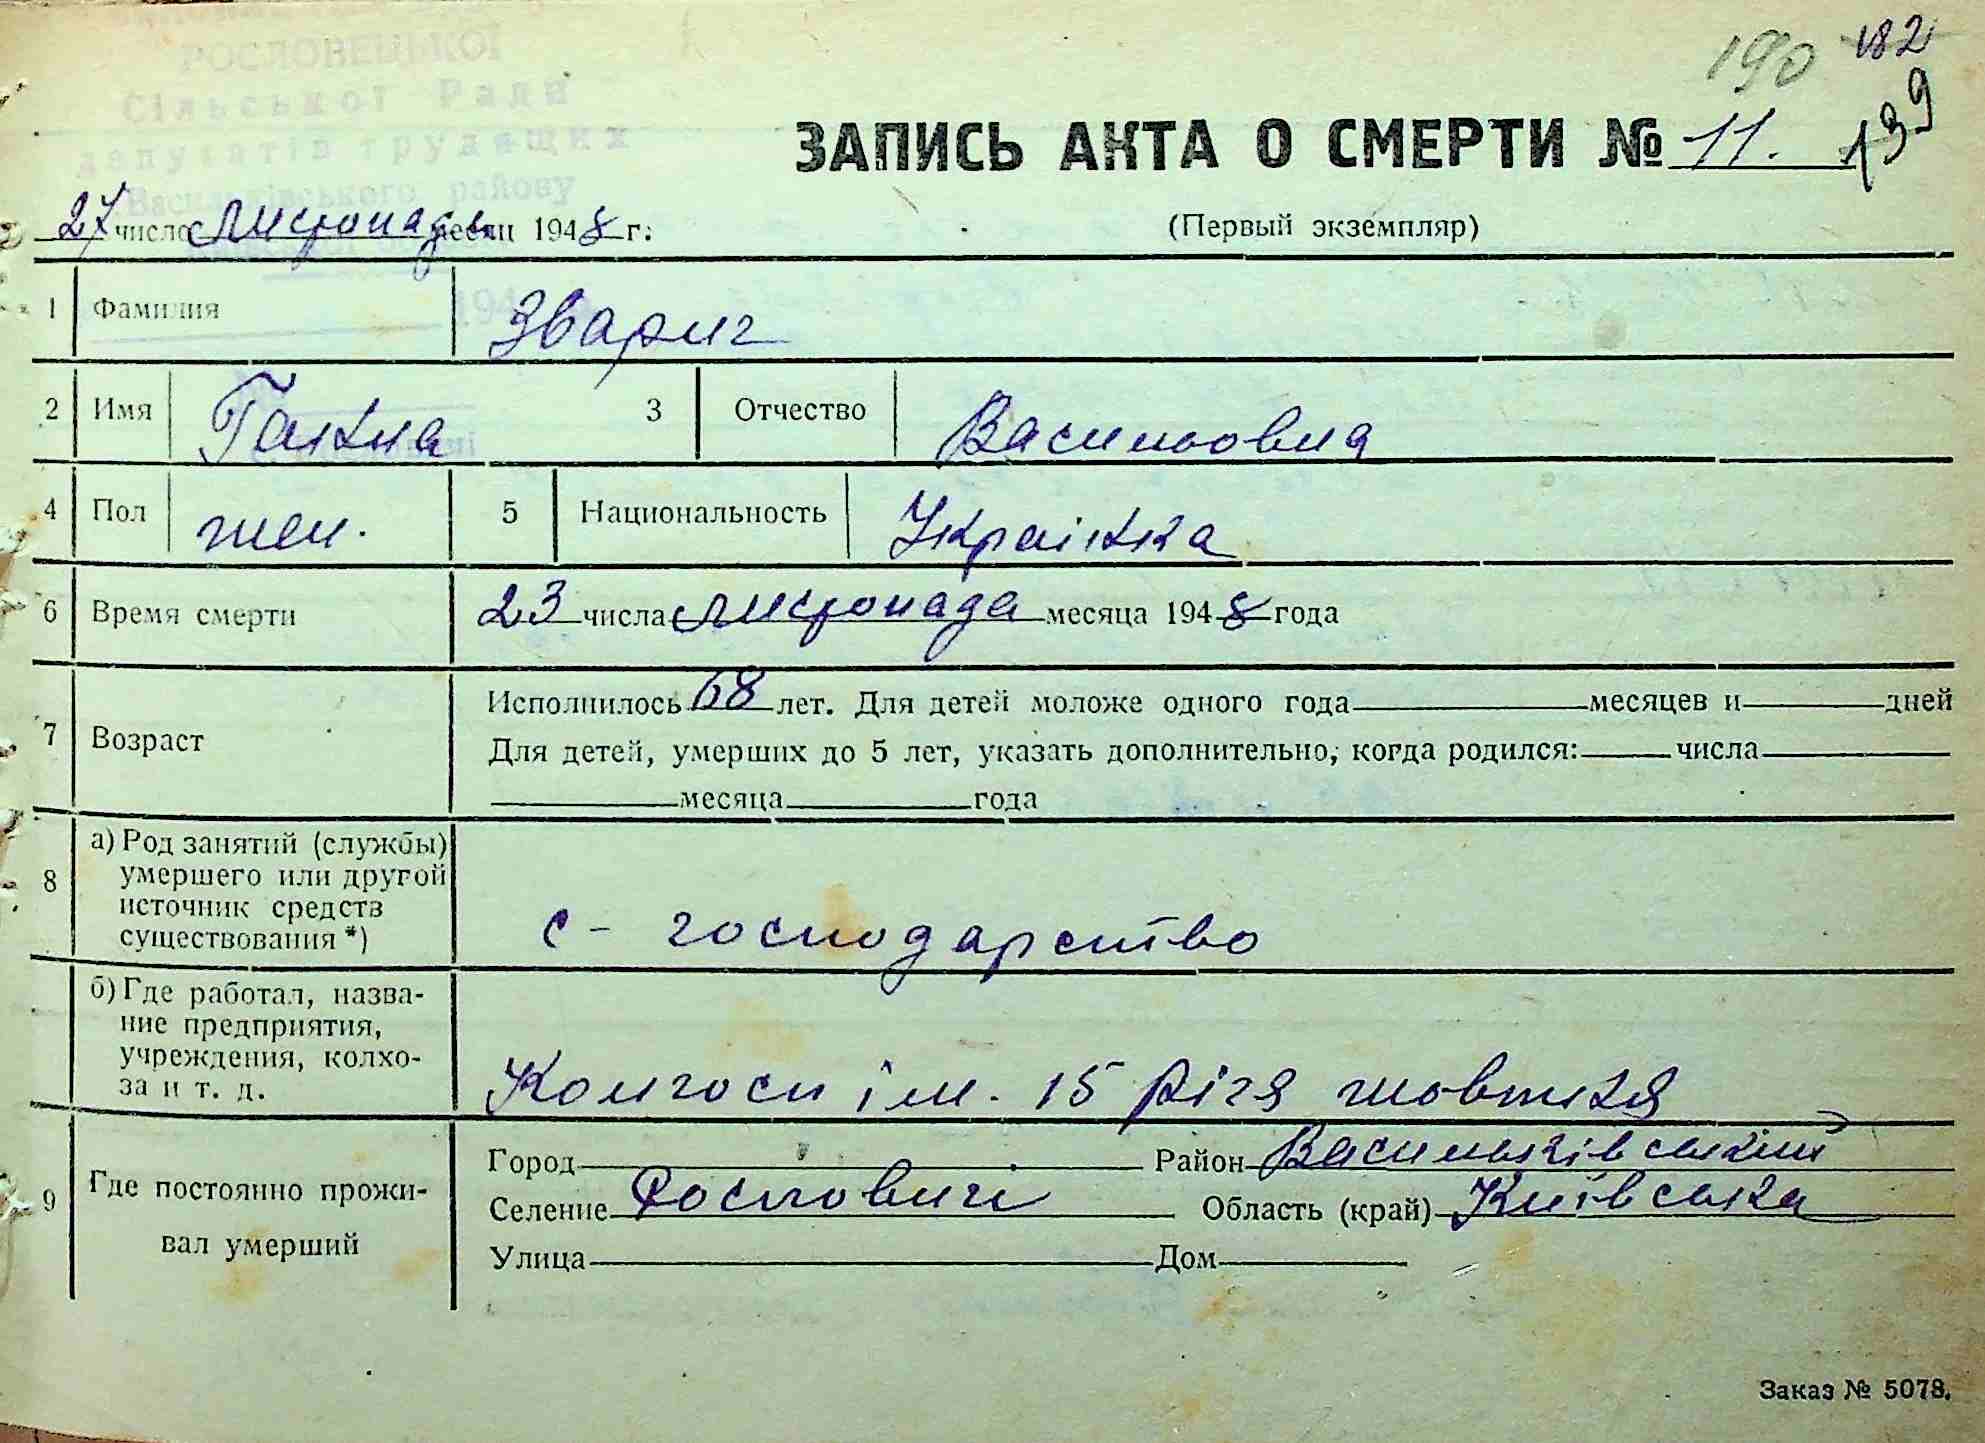 РОСЛОВЕЦЬКОЇ
Сільської Ради
депутатів трудящих
Васильківського району
190 182
139
ЗАПИСЬ АКТА О СМЕРТИ № 11.
27 число листопада месяц 1948 г.
(Первый экземпляр)
1 Фамилия Звариг
2 Имя Ганна 3 Отчество Васильовна
4 Пол жен. 5 Национальность Українка
6 Время смерти 23 числа листопада месяца 1948 года
7 Возраст
Исполнилось 68 лет. Для детей моложе одного года месяцев и дней
Для детей, умерших до 5 лет, указать дополнительно, когда родился: числа
месяца года
8 а) Род занятий (службы)
умершего или другой
источник средств
существования *)
с - господарство
б) Где работал, назва-
ние предприятия,
учреждения, колхо-
за и т. д.
Колгосп ім. 15 річя жовтня
9 Где постоянно прожи-
вал умерший
Город Район Васильківський
Селение Рословичі Область (край) Київська
Улица Дом
Заказ № 5078.